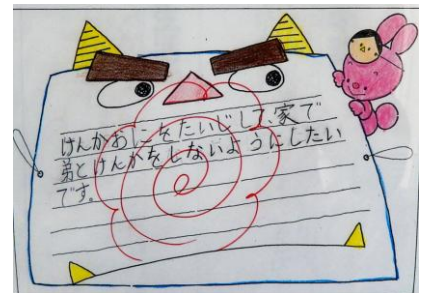 けんかおにをたいじして、家で
弟とけんかをしないようにしたい
です。